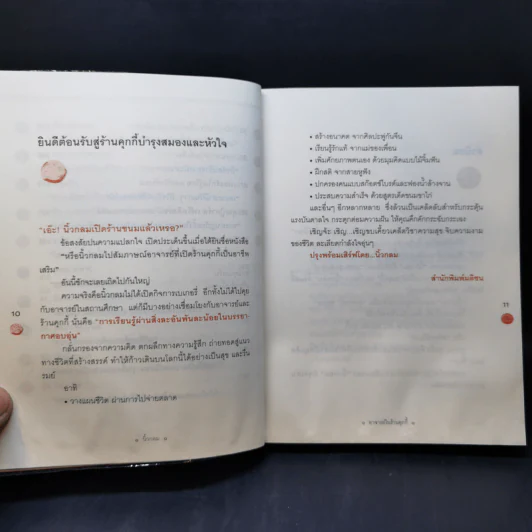 ยินดีต้อนรับสู่ร้านคุกกี้บำรุงสมองและหัวใจ
"เอ๊ะ! นิ้วกลมเปิดร้านขนมแล้วเหรอ?"
ข้อสงสัยปนความแปลกใจ เปิดประเด็นขึ้นเมื่อได้ยินชื่อหนังสือ
"หรือนิ้วกลมไปสัมภาษณ์อาจารย์ที่เปิดร้านคุกกี้เป็นอาชีพ
เสริม"
อันนี้ชักจะเลยเถิดไปกันใหญ่
ความจริงคือนิ้วกลมไม่ได้เปิดกิจการเบเกอรี่ อีกทั้งไม่ได้ไปคุย
กับอาจารย์ในสถานศึกษา แต่ก็มีบางอย่างเชื่อมโยงกับอาจารย์และ
ร้านคุกกี้ นั่นคือ "การเรียนรู้ผ่านสิ่งละอันพันละน้อยในบรรยา-
กาศอบอุ่น"
กลั่นกรองจากความคิด ตกผลึกทางความรู้สึก ถ่ายทอดสู่แนว
ทางชีวิตที่สร้างสรรค์ ทำให้ก้าวเดินบนโลกนี้ได้อย่างเป็นสุข และรื่น
รมย์
อาทิ
• วางแผนชีวิต ผ่านการไปจ่ายตลาด
10
« นิ้วกลม »
• สร้างอนาคต จากศิลปะพู่กันจีน
• เรียนรู้รักแท้ จากแม่ของเพื่อน
• เพิ่มศักยภาพตนเอง ด้วยมุมคิดแบบไม้จิ้มฟัน
• มีกสติ จากสายหูฟัง
• ปกครองคนแบบสก๊อตช์ไบรต์และฟองน้ำล้างจาน
• ประสบความสำเร็จ ด้วยสูตรเด็ดขนมขาไก่
และอื่นๆ อีกหลากหลาย ซึ่งล้วนเป็นเคล็ดลับสำหรับกระตุ้น
แรงบันดาลใจ กระตุกต่อมความฝัน ให้คุณคึกคักกระฉับกระเฉง
เชิญจ้ะ เชิญ...เชิญขบเคี้ยวเคล็ดวิชาความสุข จิบความงาม
ของชีวิต ละเลียดกำลังใจอุ่นๆ
ปรุงพร้อมเสิร์ฟโดย..นิ้วกลม
สำนักพิมพ์มติชน
11
« อาจารย์ในร้านคุกกี้ »